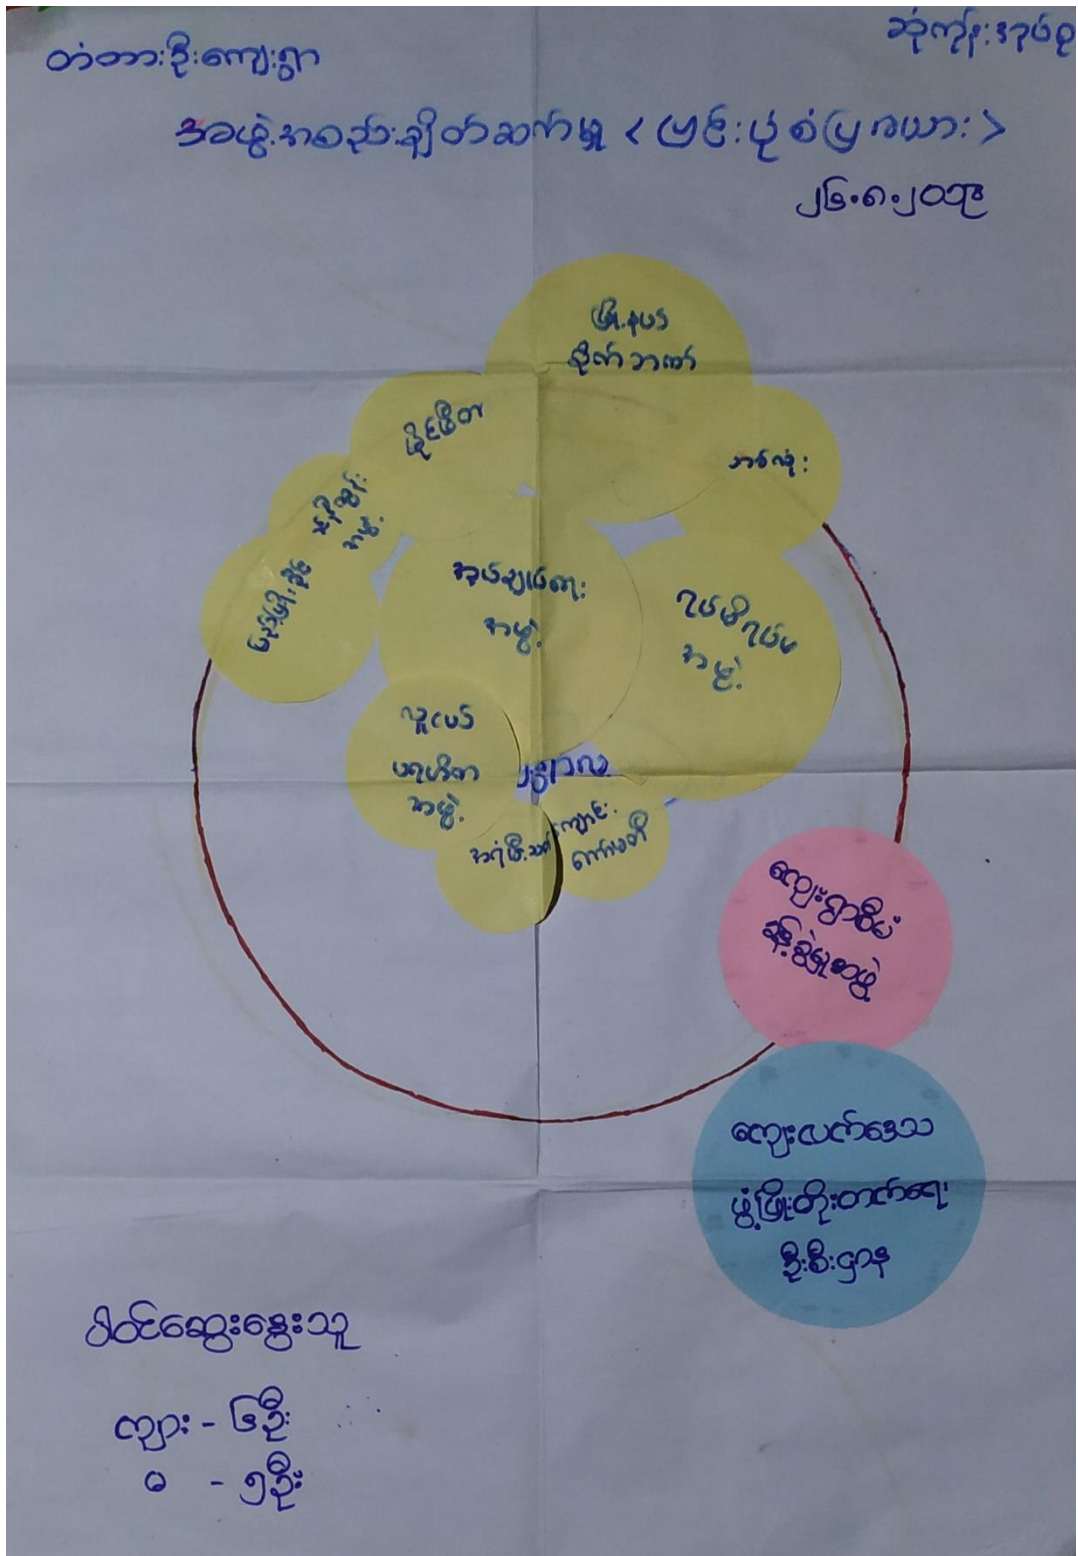 တံတားဦးကျေးရွာ
ဆုံကုန်းအုပ်စု
အဖွဲ့အစည်းချိတ်ဆက်မှု < ဗြင်းပုံစံပြဇယား >
မြို့နယ်
စိုက်ဘဏ်
မိုင်မိတာ
ဆယ်လုံး
မီးနီထွန်း
အဖွဲ့
အုပ်ချုပ်ရေး
အဖွဲ့
ရပ်မိရပ်ဖ
အဖွဲ့
လူငယ်
ပရဟိတ
အဖွဲ့
ရွာလူ
အရံမီးသတ်
ကျောင်း
ကော်မတီ
ကျေးရွာစီမံ
ခန့်ခွဲမှုအဖွဲ့
ကျေးလက်ဒေသ
ဖွံ့ဖြိုးတိုးတက်ရေး
ဦးစီးဌာန
ပါဝင်ဆွေးနွေးသူ
ကျား - ၆ဦး
မ - ၅ဦး